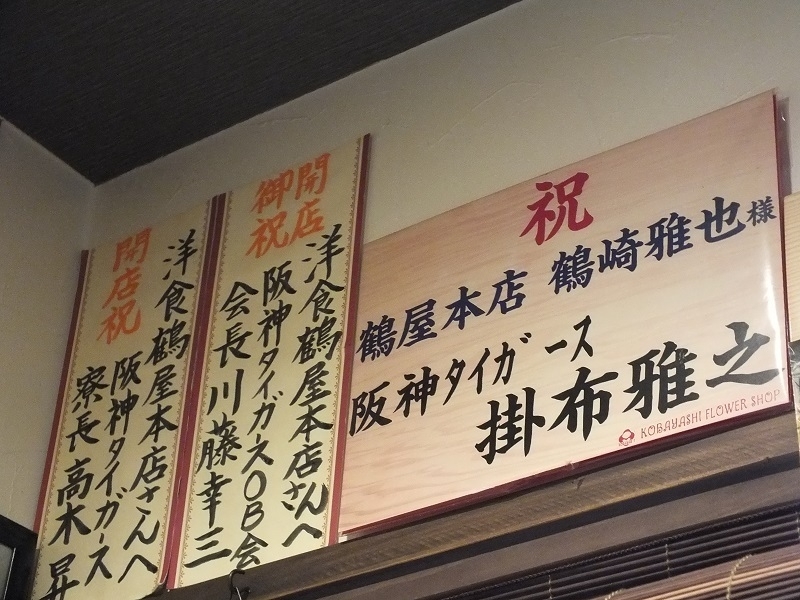 祝
鶴屋本店 鶴崎雅也様
阪神タイガース
掛布雅之
KOBAYASHI FLOWER SHOP
開店
御祝
洋食鶴屋本店さんへ
阪神タイガースOB会
会長 川藤幸三
開店祝
洋食鶴屋本店さんへ
阪神タイガース
寮長 高木昇